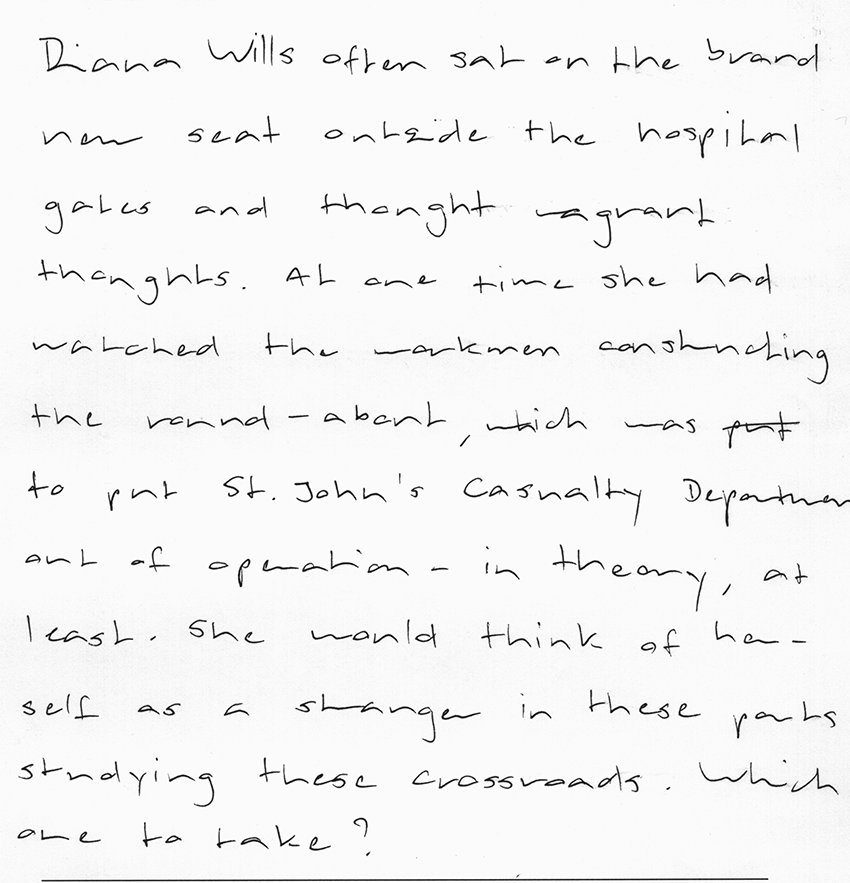 Diana Wills often sat on the brand
new seat outside the hospital
gates and thought vagrant
thoughts. At one time she had
watched the workmen constructing
the round-about, which was put
to put St. John's Casualty Departmen
out of operation - in theory, at
least. She would think of her-
self as a stranger in these parts
studying these crossroads. Which
one to take?